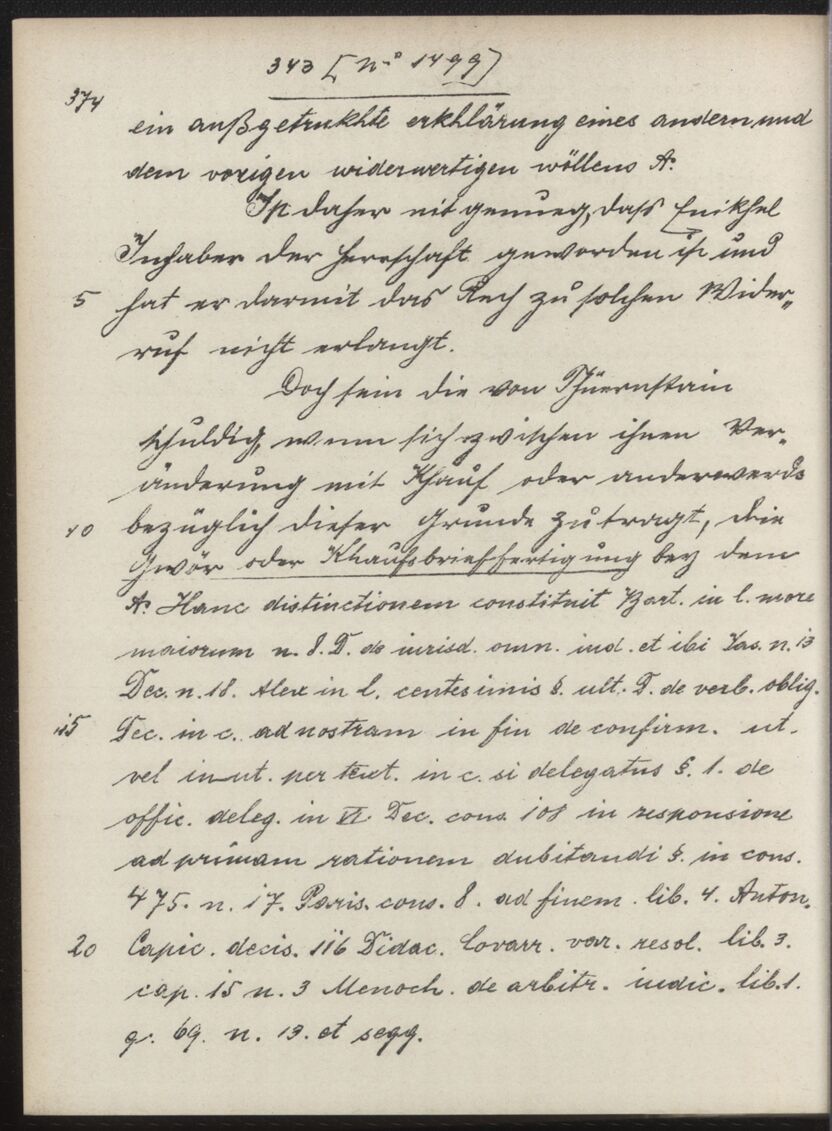 343 [No 1499]
374
ein außgetrukhte erkhlärung eines andern und
dem vorigen widerwertigen wöllens A.
Ist daher nit genueg, dass Enikhel
Inhaber der Herrschaft geworden ist und
5 hat er darmit das Rech zu solchen Wider„
ruf nicht erlangt.
Doch sein die von Thüernstain
schuldig, wenn sich zwischen ihnen Ver„
änderung mit Khauf oder anderwerds
10 bezüglich dieser Grunde zutragt, die
Gwör oder Khaufsbrieffertigung bey dem
A. Hanc distinctionem constituit Bart. in l. more
maiorum n. 8. D. de iurisd. omn. iud. et ibi Jas. n. 13
Dec. n. 18. Alex in l. centesimis §. ult. D. de verb. oblig.
15 Dec. in c. ad nostram in fin de confirm. ut.
vel inut. per text. in c. si delegatus §. 1. de
offic. deleg. in VI. Dec. cons. 108 in responsione
ad primam rationem dubitandi §. in cons.
475. n. 17. Paris. cons. 8. ad finem. lib. 4. Anton.
20 Capic. decis. 116 Didac. Covarr. var. resol. lib. 3.
cap. 15 n. 3 Menoch. de arbitr. iudic. lib. 1.
q. 69. n. 13. et segg.